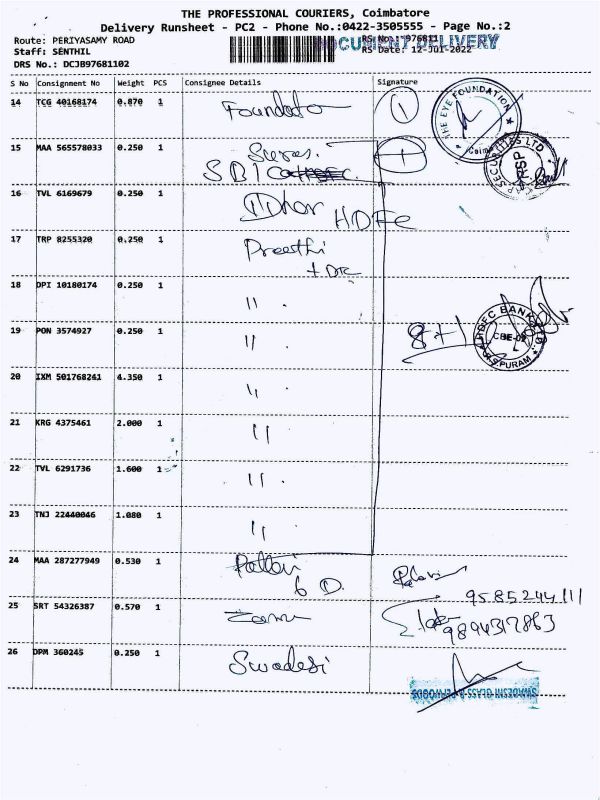 THE PROFESSIONAL COURIERS, Coimbatore
Delivery Runsheet - PC2 - Phone No.:0422-3505555 - Page No.:2
Route: PERIYASAMY ROAD
RS No.:976811
DOCUMENT DELIVERY
Staff: SENTHIL
RS Date: 12-Jul-2022
DRS No.: DCJB97681102
S No Consignment No Weight PCS Consignee Details Signature
14 TCG 40168174 0.870 1 1
THE EYE FOUNDATION
15 MAA 565578033 0.250 1 Sures. 1
SBI
SECURITIES LTD
RSP
16 TVL 6169679 0.250 1 Dhar HDFC
17 TRP 8255320 0.250 1 Preethi
18 DPI 10180174 0.250 1 " .
19 PON 3574927 0.250 1 " . 8+1
HDFC BANK LTD.
CBE-02
R.S.PURAM
20 IXM 501768241 4.350 1 " .
21 KRG 4375461 2.000 1 "
22 TVL 6291736 1.600 1 " .
23 TNJ 22440046 1.080 1 " .
24 MAA 287277949 0.530 1 Pallavi
6 D.
9585244111
25 SRT 54326387 0.570 1
9894317863
26 DPM 360245 0.250 1 Swadesi